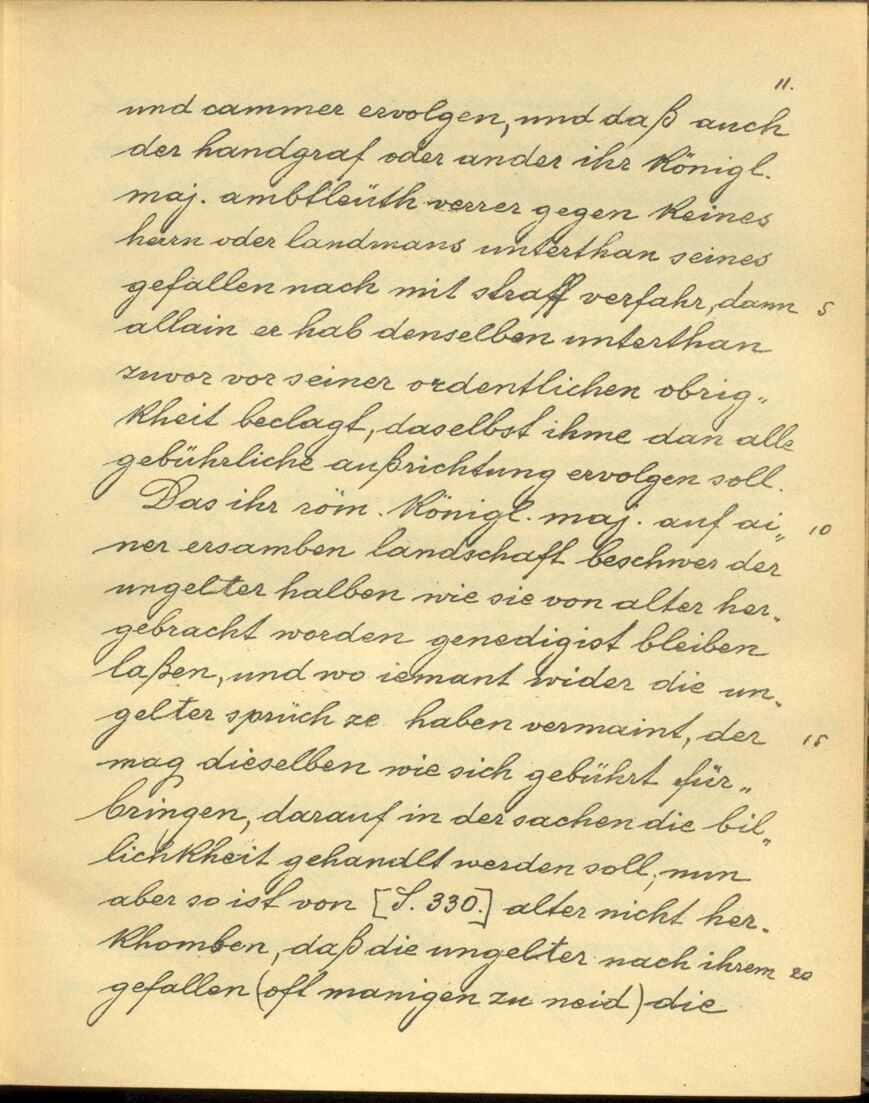 11.
und cammer ervolgen, und daß auch
der handgraf oder ander ihr Königl.
maj. ambtleüth verrer gegen keines
herrn oder landmans unterthan seines
gefallen nach mit straff verfahr, dann 5
allain er hab denselben unterthan
zuvor vor seiner ordentlichen obrig„
kheit beclagt, daselbst ihme dan alle
gebührliche außrichtung ervolgen soll.
Das ihr röm. Königl. maj. auf ai„ 10
ner ersamben landschaft beschwer der
ungelter halben wie sie von alter her„
gebracht worden genedigist bleiben
laßen, und wo iemant wider die un„
gelter sprüch ze haben vermaint, der 15
mag dieselben wie sich gebührt für„
bringen, darauf in der sachen die bil„
lichkheit gehandlt werden soll; nun
aber so ist von [S. 330.] alter nicht her„
khomben, daß die ungelter nach ihrem 20
gefallen (oft manigen zu neid) die